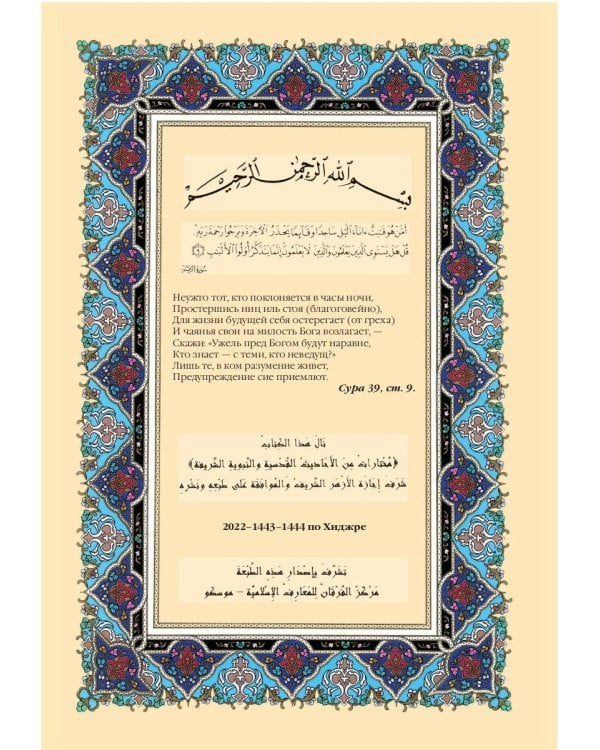 بِسْمِ اللهِ الرَّحْمٰنِ الرَّحِيْمِ
أَمَّنْ هُوَ قَٰنِتٌ ءَانَآءَ ٱلَّيْلِ سَاجِدًا وَقَآئِمًا يَحْذَرُ ٱلْءَاخِرَةَ وَيَرْجُوا۟ رَحْمَةَ رَبِّهِۦ
قُلْ هَلْ يَسْتَوِى ٱلَّذِينَ يَعْلَمُونَ وَٱلَّذِينَ لَا يَعْلَمُونَ إِنَّمَا يَتَذَكَّرُ أُو۟لُوا۟ ٱلْأَلْبَٰبِ ٩
سورة الزمر
Неужто тот, кто поклоняется в часы ночи,
Простершись ниц иль стоя (благоговейно),
Для жизни будущей себя остерегает (от греха)
И чаянья свои на милость Бога возлагает, —
Скажи: «Ужель пред Богом будут наравне,
Кто знает — с теми, кто неведущ?»
Лишь те, в ком разумение живет,
Предупреждение сие приемлют.
Сура 39, ст. 9.
نَالَ هَذَا الكِتَابُ
﴿مُخْتَارَاتٌ مِنَ الأَحَادِيثِ القُدْسِيَّةِ والنَّبَوِيَّةِ الشَّرِيفَةِ﴾
شَرَفَ إِجَازَةِ الأَزْهَرِ الشَّرِيفِ والمُوَافَقَةِ عَلَى طَبْعِهِ ونَشْرِهِ
2022–1443–1444 по Хиджре
تَشَرَّفَ بِإِصْدَارِ هَذِهِ الطَّبْعَةِ
مَرْكَزُ الفُرْقَانِ لِلْمَعَارِفِ الإِسْلَامِيَّةِ – موسكو